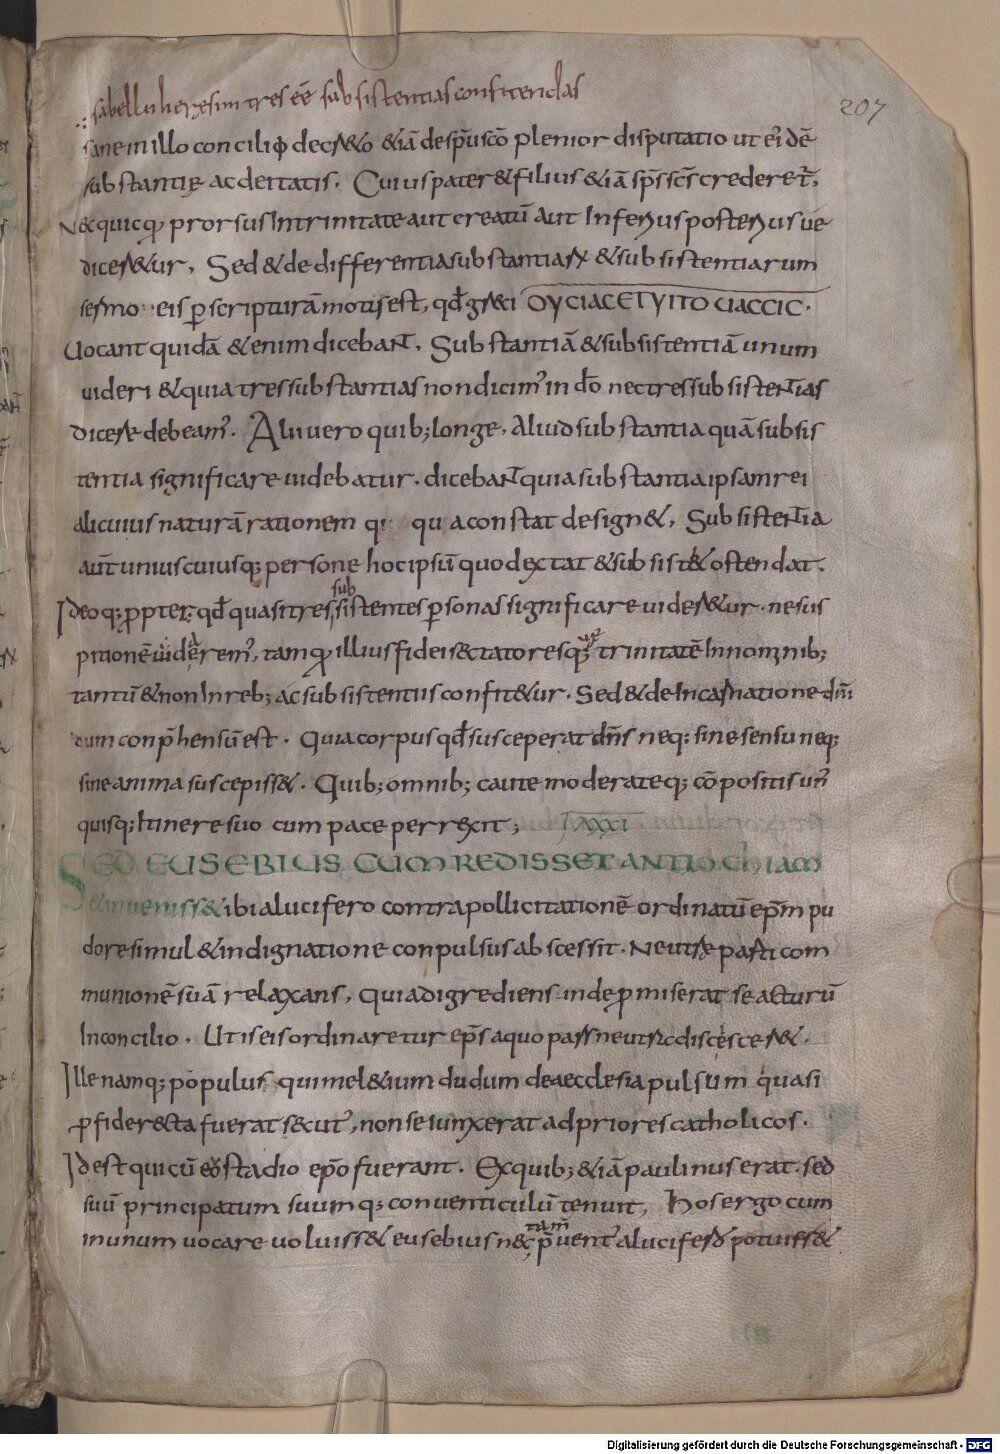 207
sabellii heresim tres eē subsistentias confitendas
sane in illo concilio decret&o &iā de spū scō plenior disputatio ut ei' dē
substantię ac deitatis. Cuius pater & filius &iā sps scs crederet̄.
N&quicq prorsus In trinitate aut creatū aut Inferius posterius ue
dicer&ur. Sed & de differentia substantiarum & subsistentiarum
sermo eis p scripturā motus est, qđ greci ΟΥCΙΑC ΕΤ ΥΠΟCΤΑCΕΙC.
Uocant quidā &enim dicebant. Substantiā & subsistentiā unum
uideri & quia tres substantias non dicim' in dō nec tres subsistentias
dicere debeam'. Alii uero quib; longe, aliud substantia quā subsis
tentia significare uidebatur. dicebant quia substantia ipsam rei
alicuius naturā rationem qua constat design&, Subsistentia
aūt uniuscuiusq; persone hoc ipsū quod extat & subsist& ostendat.
Ideoq; ppter qđ quasi tres subsistentes psonas significare uider&ur. ne sus
pitionē uideremur, tamq illius fidei sectatores que trinitatē In nominib;
tantū & non In reb; ac subsistentiis confit&ur. Sed & de Incarnatione dni
dum conphensū est. Quia corpus qđ susceperat dns neq; sine sensu neq;
sine anima suscepiss&. Quib; omnib; caute moderateq; cōpositis un'
quisq; Itinere suo cum pace perrexit; XXXI
SED EUSEBIUS CUM REDISSET ANTIOCHIAM
& inueniss& ibi a lucifero contra pollicitationē ordinatū epm pu
dore simul & indignatione conpulsus abscessit. Neutre parti com
munionē suā relaxans, quia digrediens inde pmiserat se acturū
In concilio. Ut is eis ordinaretur eps a quo pars neutra discescer&.
Ille namq; populus qui mel&ium dudum de aecclesia pulsum quasi
p fide recta fuerat secut', non se iunxerat ad priores catholicos.
Idest qui cū eostadio epo fuerant. Ex quib; &iā paulinus erat. sed
suū principatum suumq; conuenticulū tenuit, Hos ergo cum
in unum uocare uoluiss& eusebius nec tam puent' a lucifero potuiss&
Digitalisierung gefördert durch die Deutsche Forschungsgemeinschaft - DFG